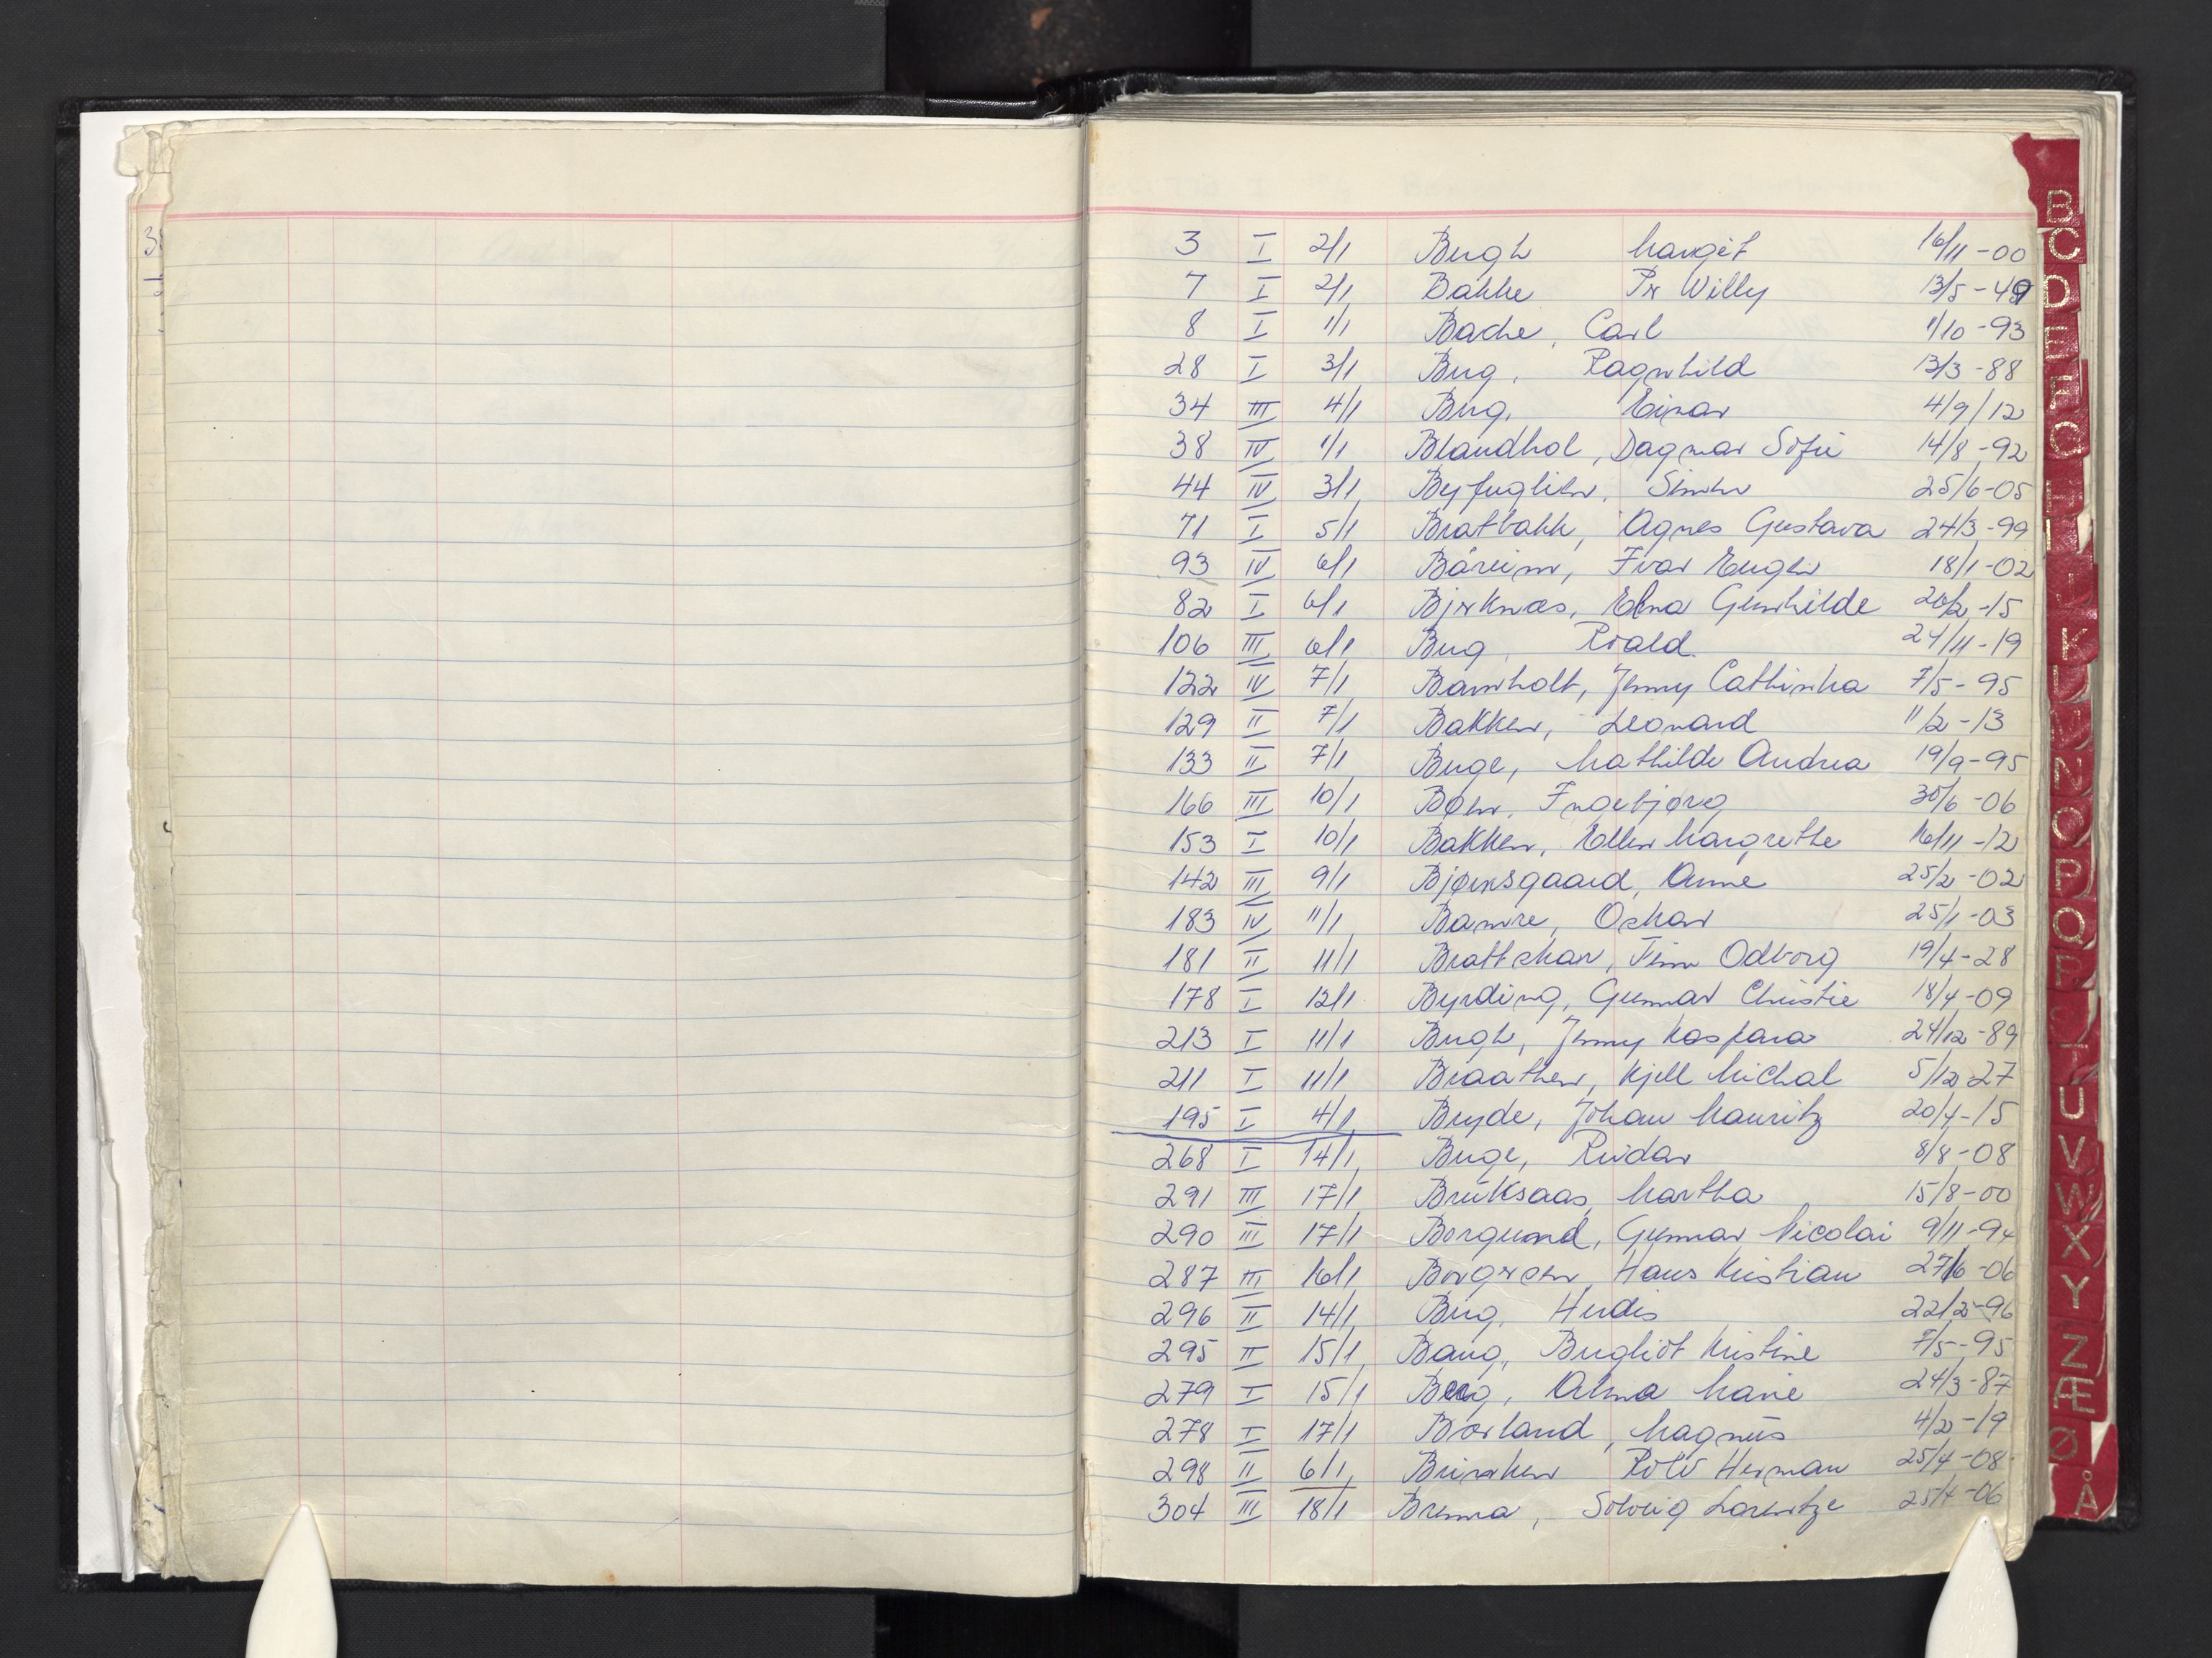 3 I 2/1 Bergh Margit 16/11-00
7 I 2/1 Bakke Per Willy 13/5-49
8 I 1/1 Bache, Carl 1/10-93
28 I 3/1 Berg, Ragnhild 13/3-88
34 III 4/1 Berg, Einar 4/9/12
38 IV 1/1 Blandhol, Dagmar Sofie 14/8-92
44 IV 3/1 Byfuglien, Simen 25/6-05
71 I 5/1 Bratbakk, Agnes Gustava 24/3-99
93 IV 6/1 Båreim, Ivar Eugen 18/1-02
82 I 6/1 Bjerknæs, Elna Gunhilde 26/2-15
106 III 6/1 Berg, Roald 24/11-19
122 IV 7/1 Barnholt, Jenny Cathinka 7/5-95
129 II 7/1 Bakken, Leonard 11/2-13
133 II 7/1 Berge, Mathilde Andrea 19/9-95
166 III 10/1 Bøen, Ingebjørg 30/6-06
153 I 10/1 Bakken, Ellen Margrethe 16/11-12
142 III 9/1 Bjørnsgaard, Anne 25/2-02
183 IV 11/1 Oskar 25/1-03
181 II 11/1 Brattskar, Finn Odborg 19/4-28
178 I 12/1 Byrding, Gunnar Christie 18/4-09
213 I 11/1 Bergh, Jenny Kaspara 24/12-89
211 I 11/1 Braathen, Kjell Michal 5/12-27
195 I 4/1 Bryde, Johan Mauritz 20/4-15
268 I 14/1 Berge, Reidar 8/8-08
291 III 17/1 Martha 15/8-00
290 III 17/1 Borgund, Gunnar Nicolai 9/11-94
287 III 16/1 Borgersen, Hans Kristian 27/6-06
296 II 14/1 Berg, Herdis 22/2-96
295 II 15/1 Bang, Bergliot Kristine 7/5-95
279 I 15/1 Berg, Alma Marie 24/3-87
278 I 17/1 Børland, Magnus 4/2-19
298 II 6/1 Brinken Rolv Herman 25/4-08
304 III 18/1 Brenna, Solveig Lorentze 25/4-06
B
C
D
E
F
G
H
I
J
K
L
M
N
O
P
Q
R
S
T
U
V
W
X
Y
Z
Æ
Ø
Å